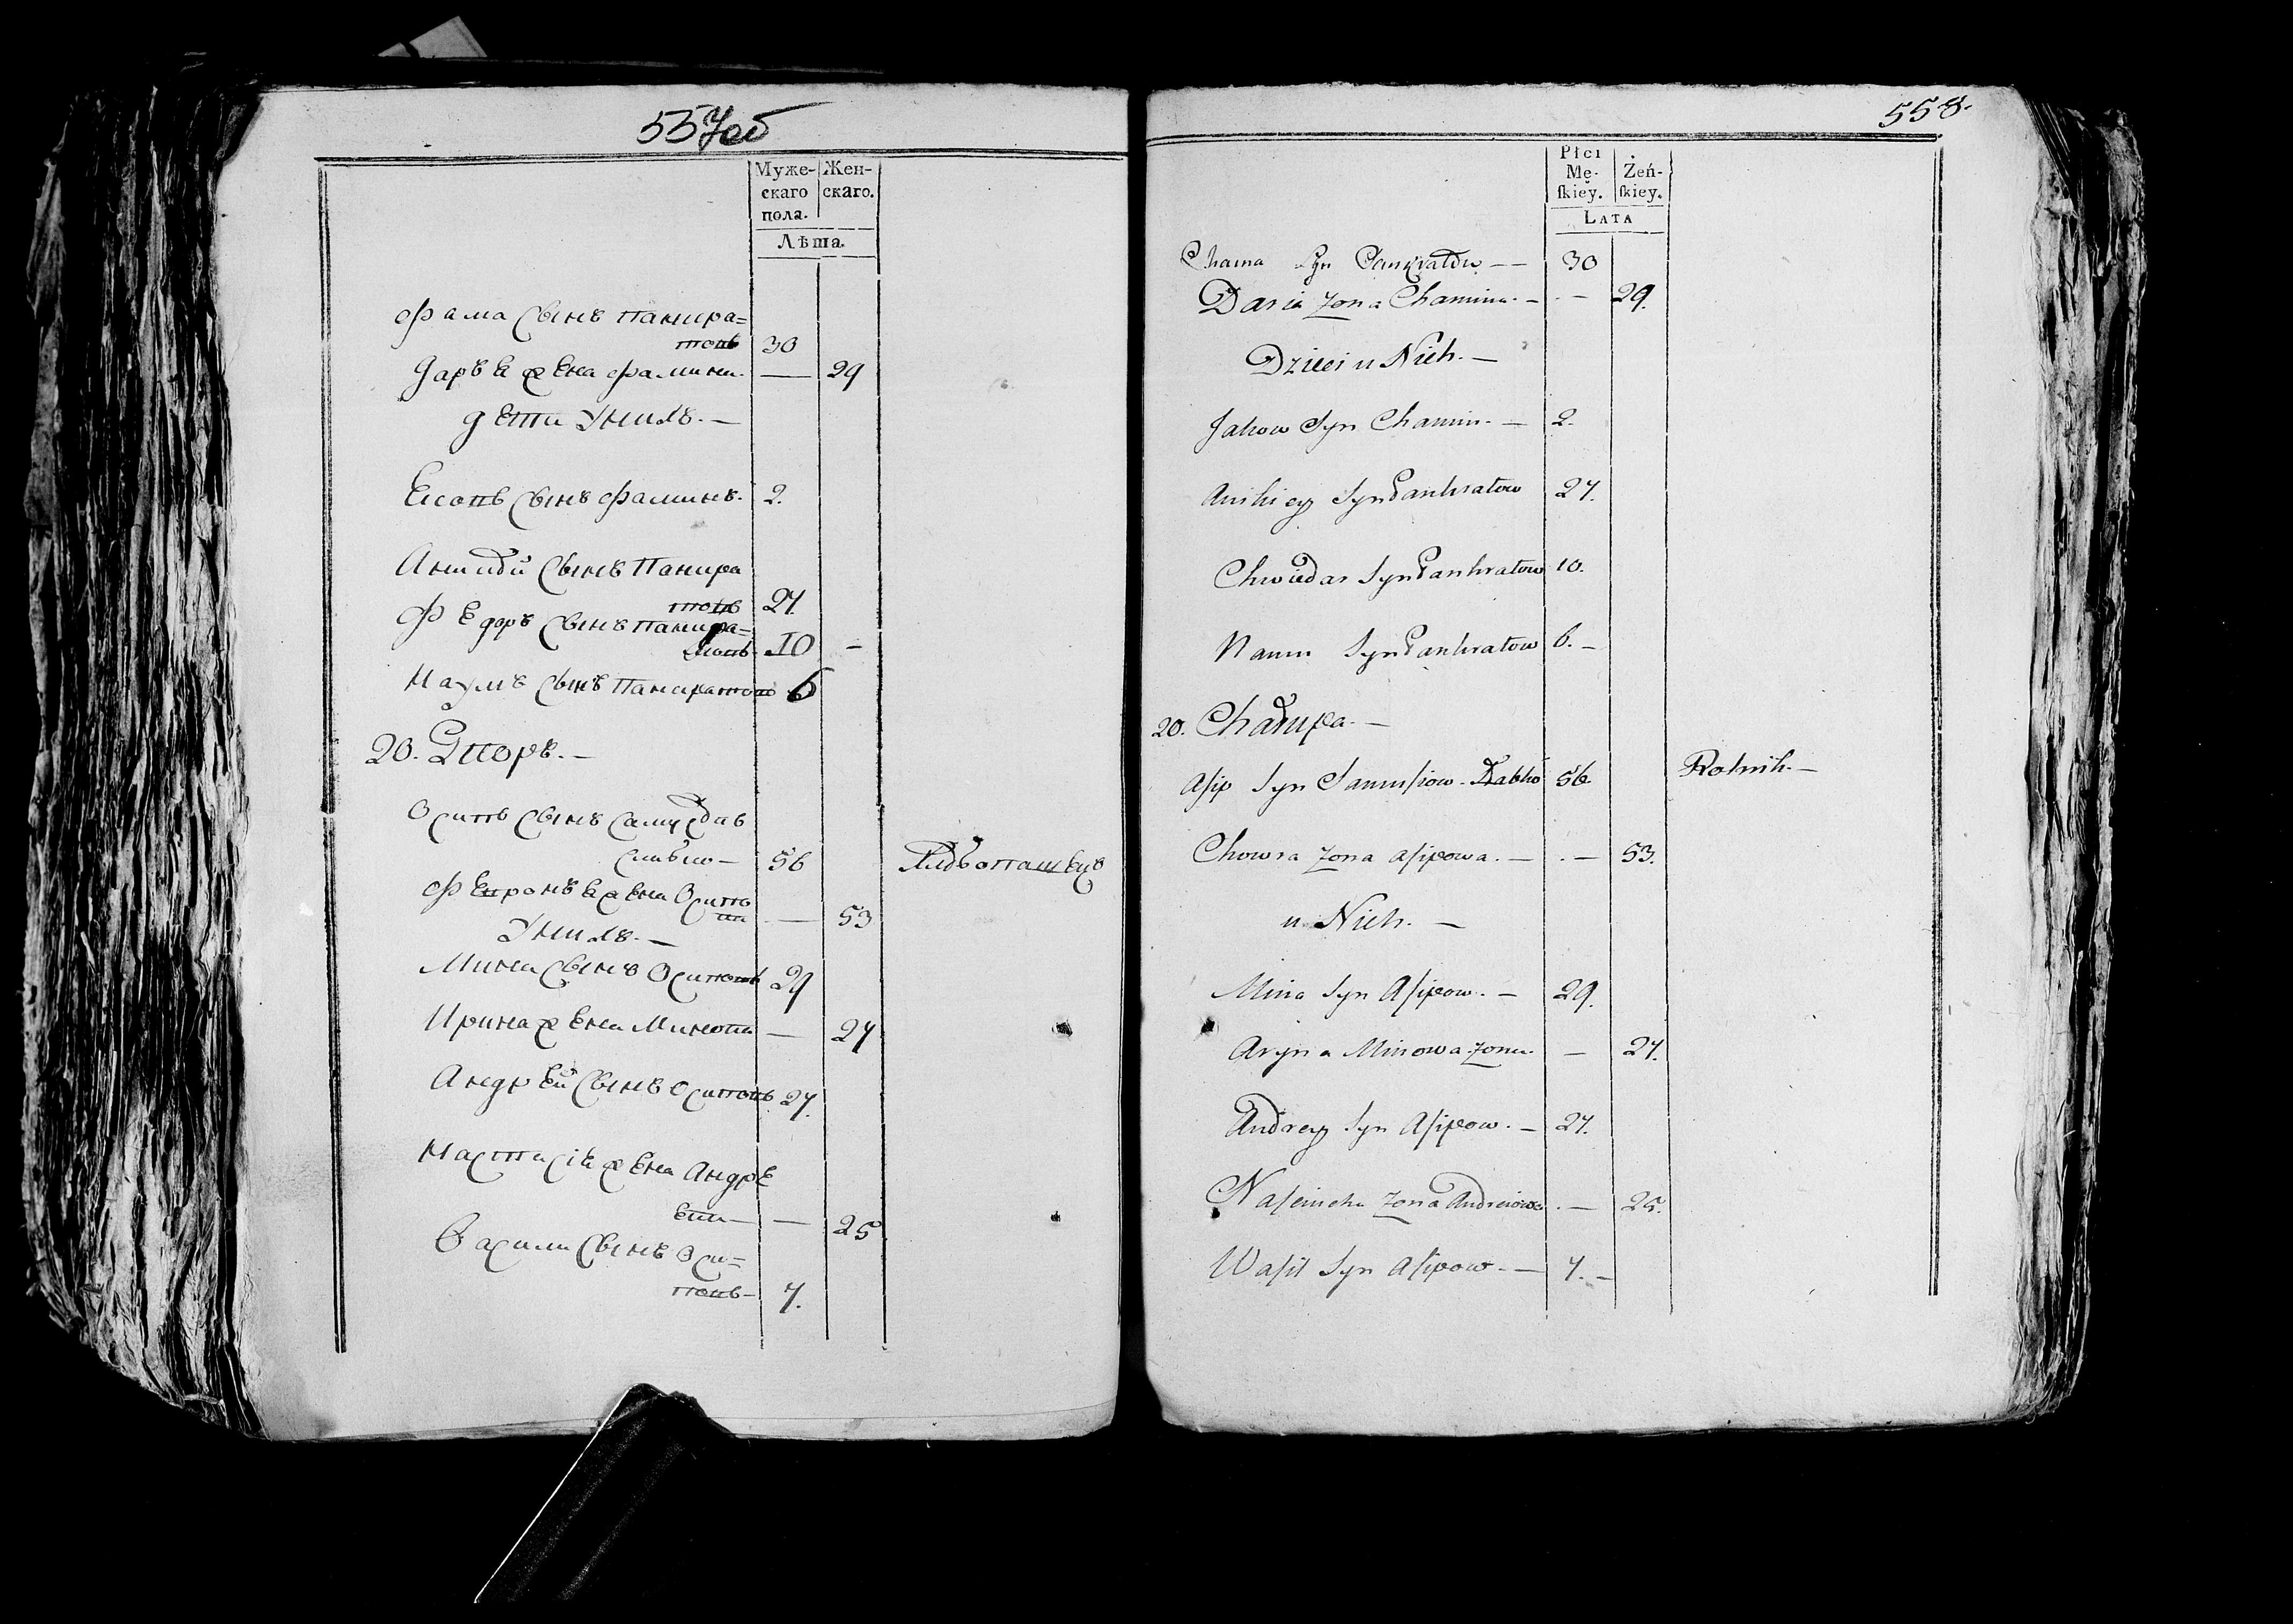 557об
Муже- Жен-
скаго скаго.
пола.
Лѣта.
Фама сынъ панкра=
товъ 30
Дарья жена фамина. — 29
дети Унихъ. —
сынъ фаминъ. 2.
сынъ Панкра
товъ 27.
Федоръ сынъ панкра=
товъ 10 –
Наумъ сынъ Панкратовъ 6
20. Дворъ. —
Осипъ сынъ
56 Хлѣбопашецъ
жена Осипо
ва — 53
Унихъ. —
Мина сынъ Осиповъ 29
Ирина жена Минова — 27
Андрей сынъ Осиповъ 27.
Настасія жена Андре
ева — — 25
Васили сынъ Оси=
повъ — 7.
558.
Płci
Mę- Żeń-
ſkiey. ſkiey.
LATA
Chama Syn Pankratow — 30
Daria Zona Chamina. — · — 29.
Dzieci u Nich. —
Jakow Syn Chamin. — 2.
Anikiey Syn Pankratow 27.
Chwiedar Syn Pankratow 10.
Naum Syn Pankratow 6. –
20. Chałupa. —
Aſip Syn Samuſiow 56 Rolnik. —
Chowra Zona Aſipowa. — · — 53.
u Nich. —
Mina Syn Aſipow. — 29.
Aryna Minowa Zona. — 27.
Andrey Syn Aſipow. — 27.
Zona Andreiowa · — 25.
Waſil Syn Aſipow. — 7. –